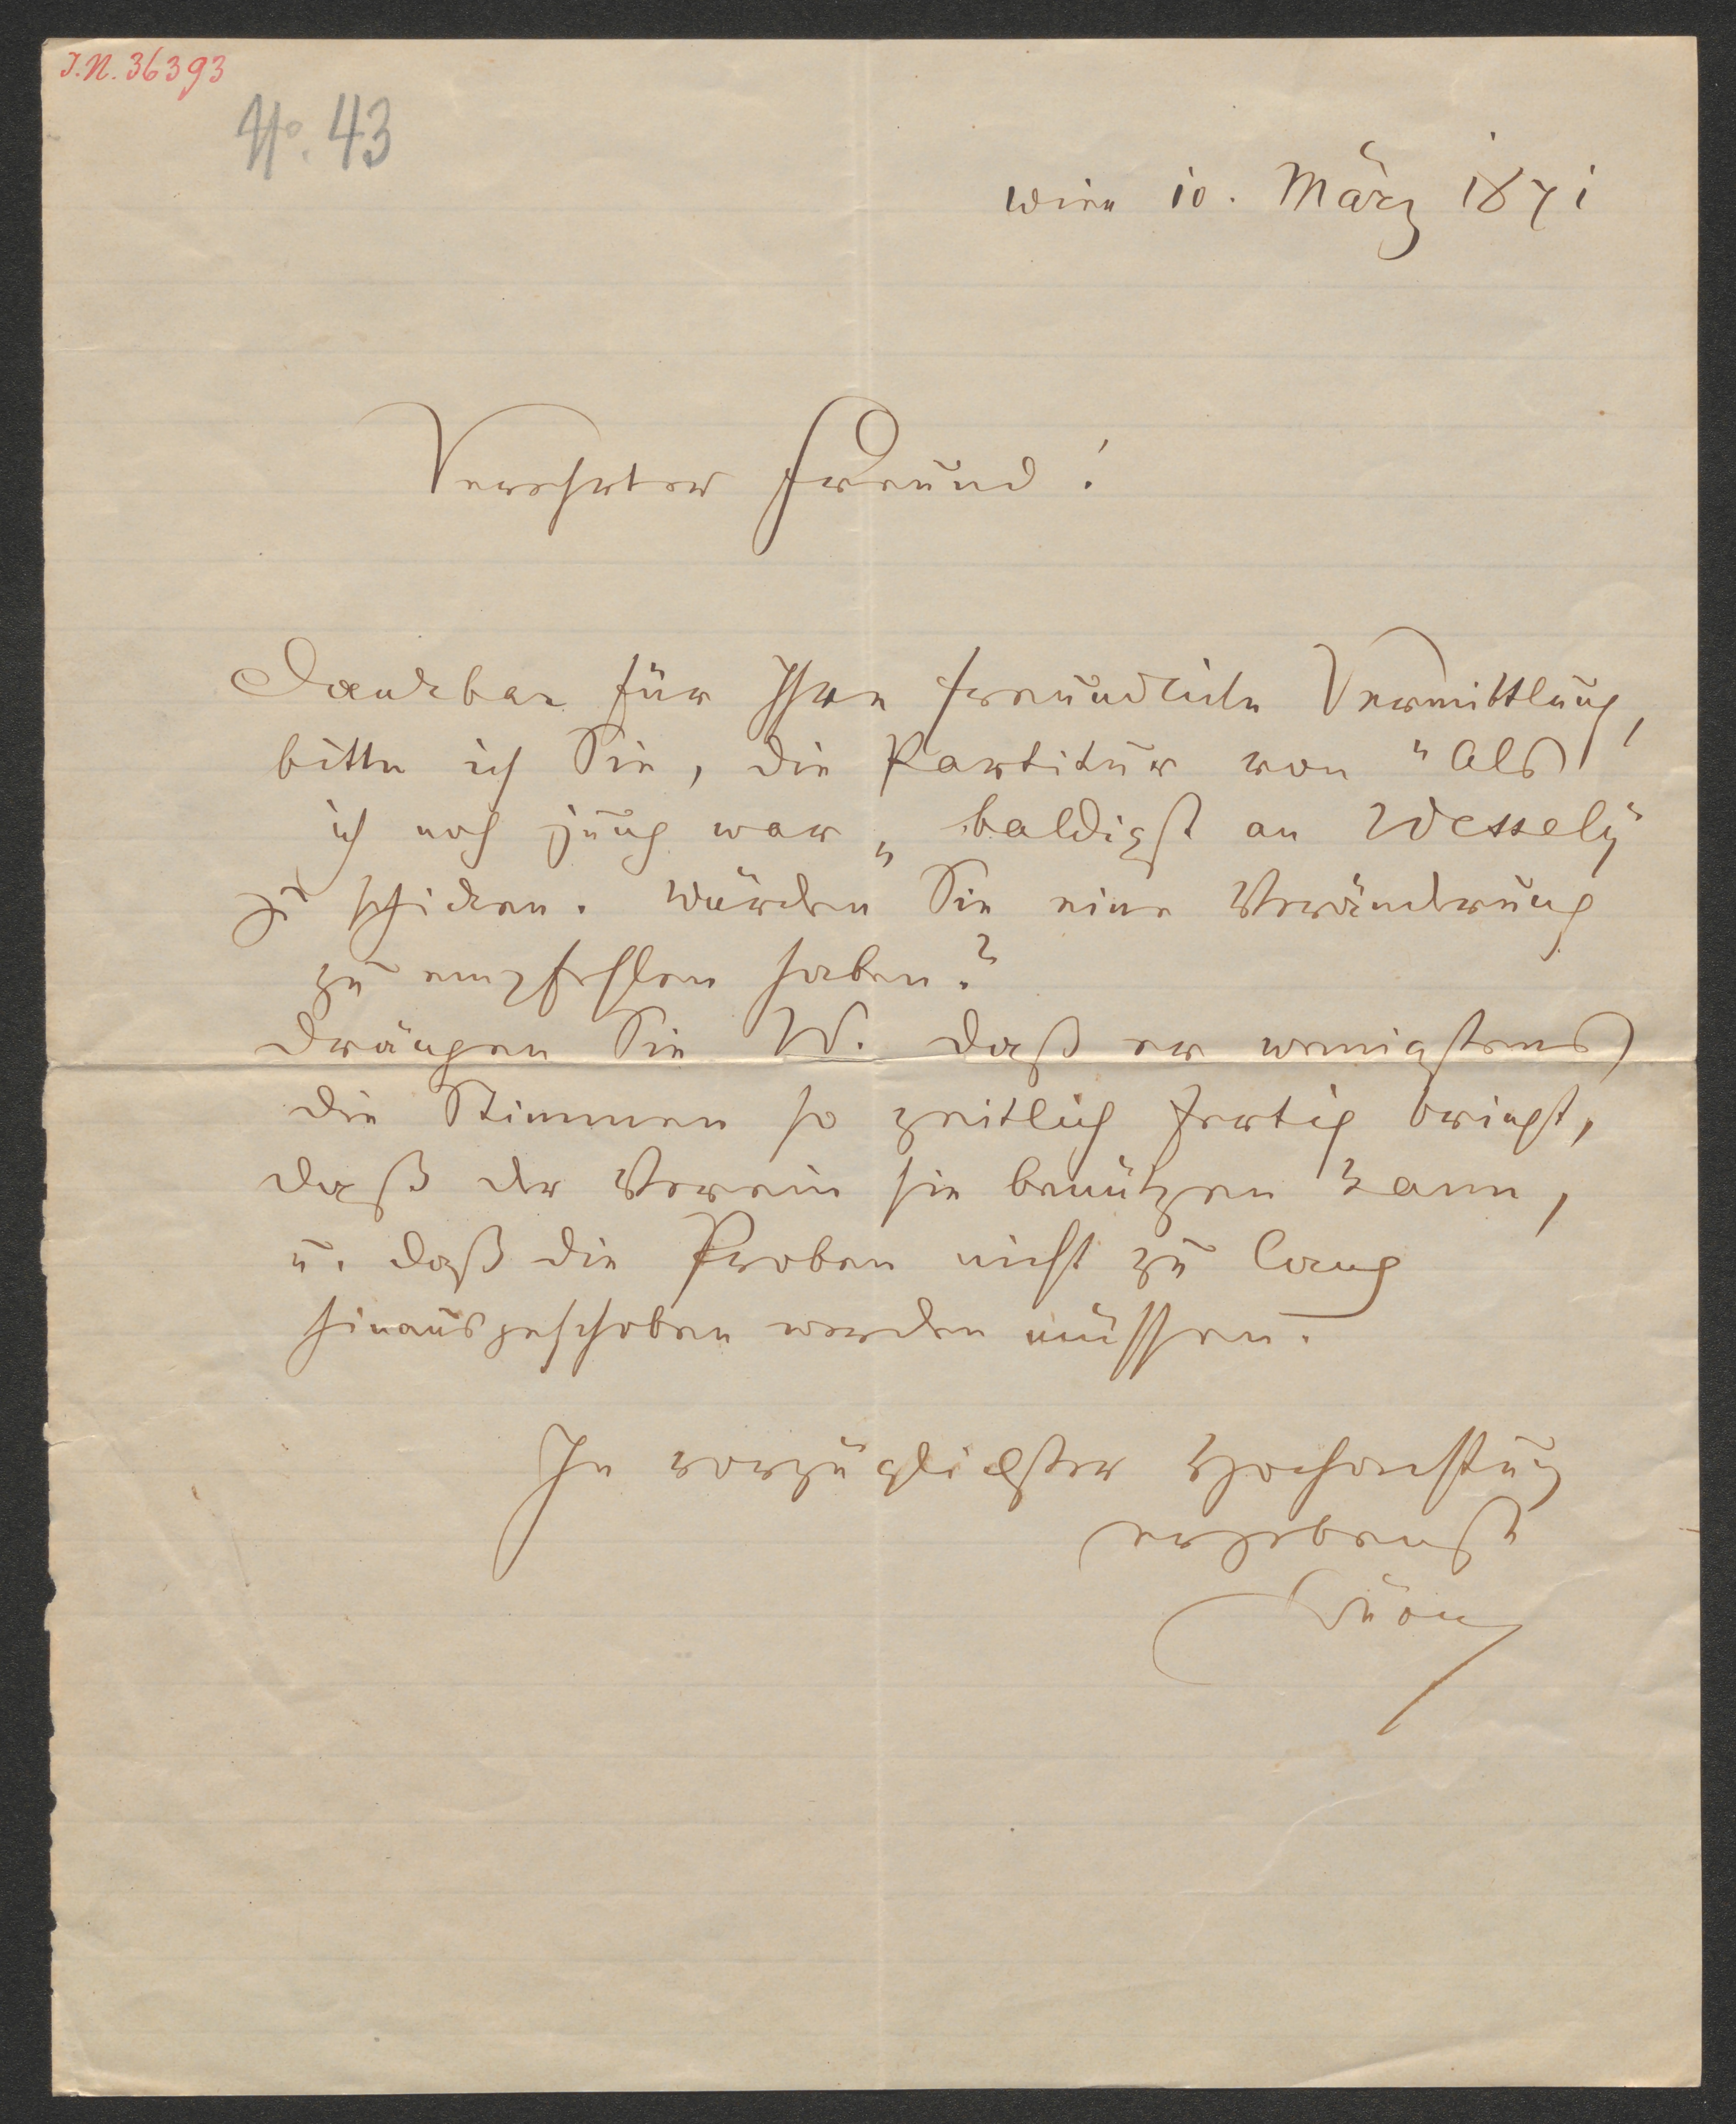 I.N. 36393
No. 43
Wien 10. März 1871
Verehrter Freund!
Dankbar für Ihre freundliche Vermittlung,
bitte ich Sie, die Partitur von "Als
ich noch jung war" baldigst an Wessely
zu schicken. Würden Sie eine Veränderung
zu empfehlen haben?
Drängen Sie W. daß er wenigstens
die Stimmen so zeitlich fertig bringt,
daß der Verein sie benützen kann,
u. daß die Proben nicht zu lang
hinausgeschoben werden müssen.
In vorzüglichster Hochachtung
ergebenst